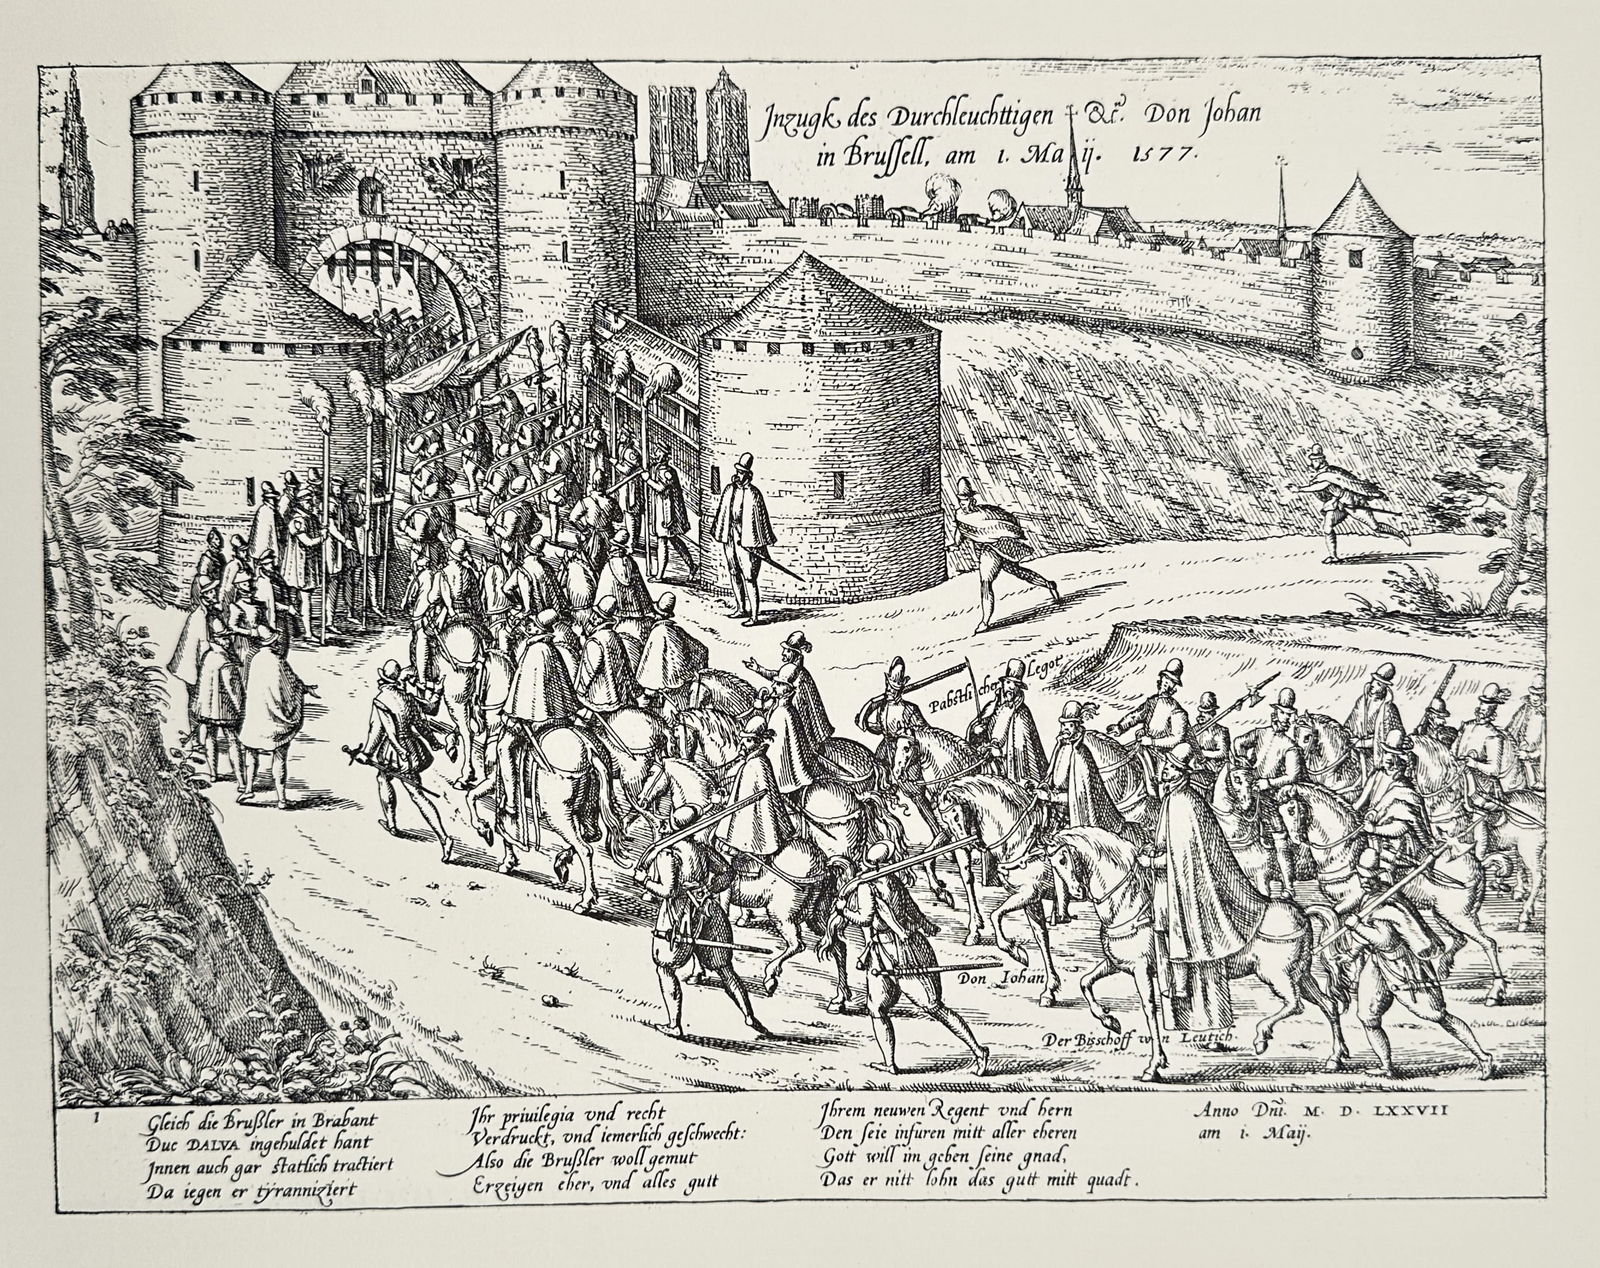 Jnzugk des Durchleuchttigen &c. Don Johan
in Brussell, am 1. Maij. 1577.
Pabstlicher Legot
Don Iohan
Der Bisschoff von Leutich.
1
Gleich die Brußler in Brabant
Duc DALVA ingehuldet hant
Jnnen auch gar statlich tractiert
Da iegen er tÿranniziert
Jhr priuilegia vnd recht
Verdruckt, vnd iemerlich geschwecht:
Also die Brußler woll gemut
Erzeigen eher, vnd alles gutt
Jhrem neuwen Regent vnd hern
Den seie infuren mitt aller eheren
Gott will im geben seine gnad,
Das er nitt lohn das gutt mitt quadt.
Anno Dñi. M. D. LXXVII
am i. Maij.